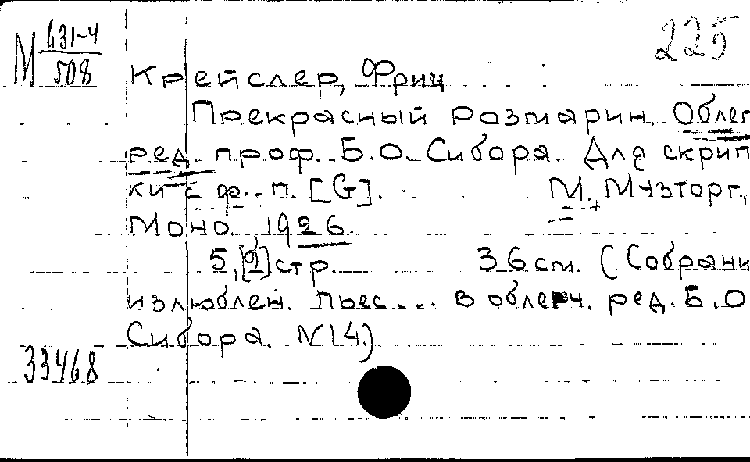 225
М 631-4
508
Крейслер, Фриц
Прекрасный розмарин. Облег
ред. проф. Б.О. Сибора. Для скрип
ки с ф.-п. [G]. М., Музторг,
Моно. 1926.
5,[2] стр. 36 см. (Собрани
излюблен. пьес... в облегч. ред. Б.О
Сибора. N 14.)
33468